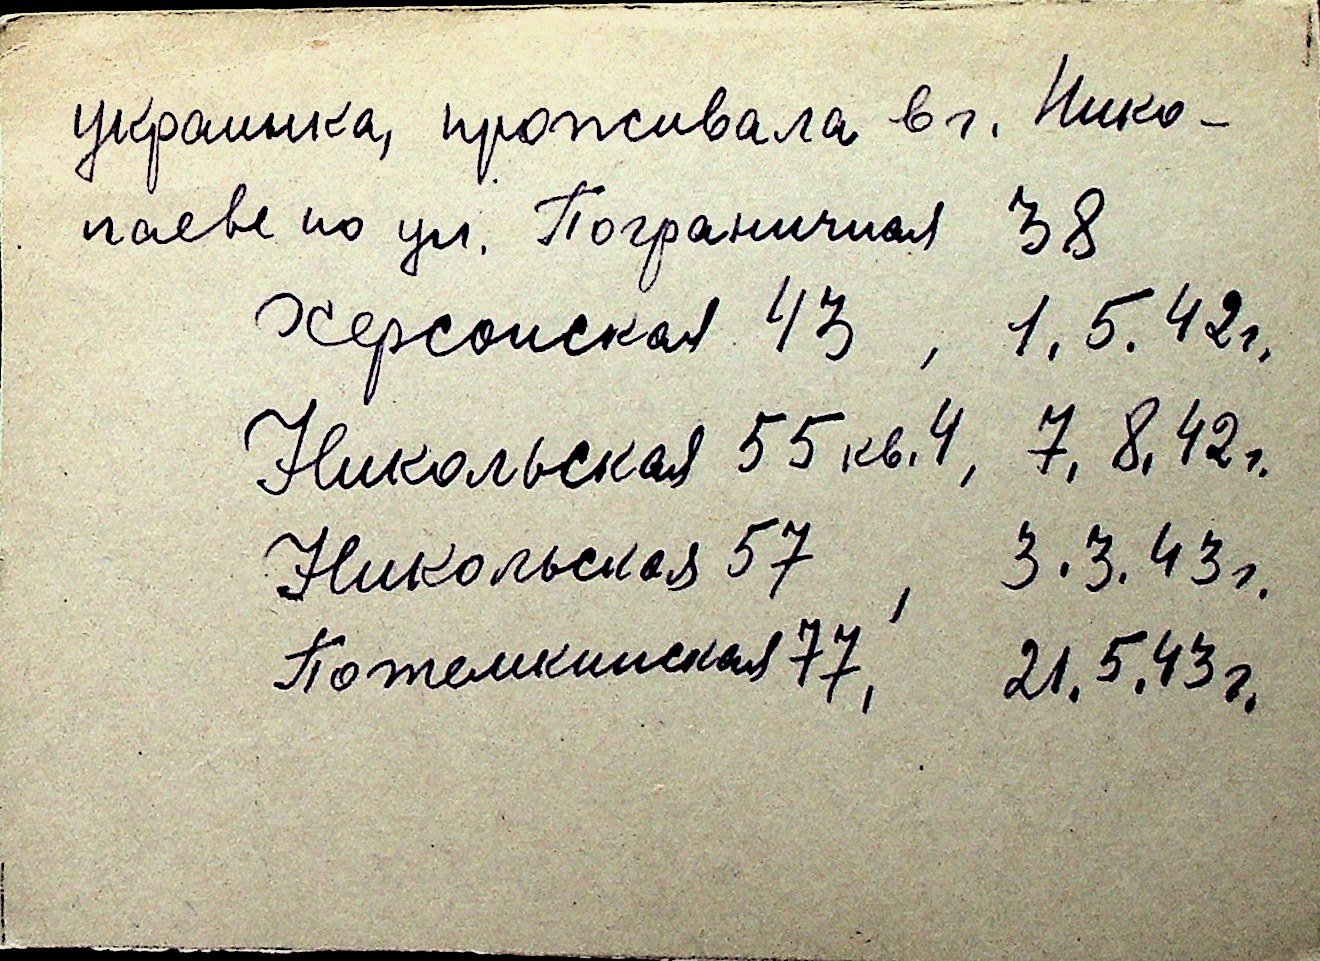 украинка, проживала в г. Нико-
лаеве по ул. Пограничная 38
Херсонская 43 , 1.5.42г.
Никольская 55 кв.4, 7.8.42г.
Никольская 57 , 3.3.43г.
Потемкинская 77, 21.5.43г.